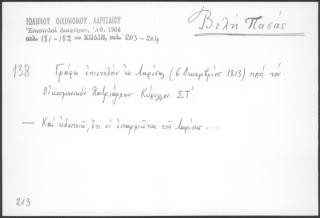 ΙΩΑΝΝΟΥ ΟΙΚΟΝΟΜΟΥ ΛΑΡΙΣΑΙΟΥ
Ἐπιστολαὶ Διαφόρων, Ἀθ. 1964
σελ. 181-182 = ΚΩΔΙΞ, σελ. 203-204
Βελῆ Πασᾶς
138 Γράφει ἐπιστολὴν ἐκ Λαρίσης (6 Ὀκτωβρίου 1813) πρὸ τὸν
Οἰκουμενικὸν Πατριάρχην Κύριλλον ΣΤ'
— Καὶ εἰδοποιεῖ, ὅτι οἱ ἐπαρχιῶται τοῦ Λαρίσης ...
213